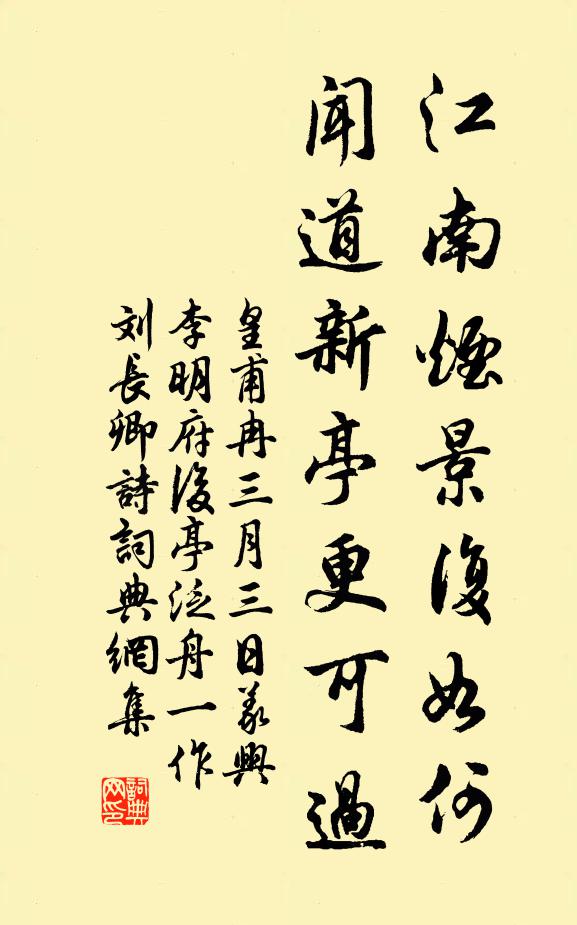 江南煙景復如何
聞道新亭更可過
皇甫冉三月三日義興
李明府後亭泛舟一作
刘長卿詩詞典網集
詞典网印